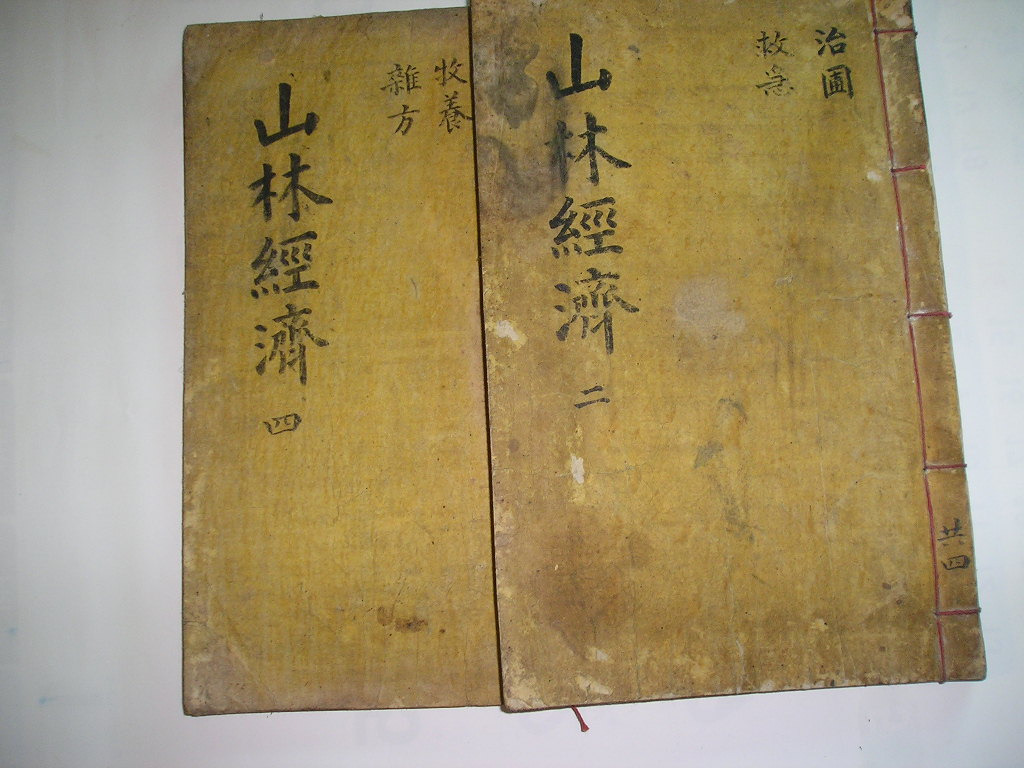 治圃
救急
山林經濟 二
共四
牧養
雜方
山林經濟 四